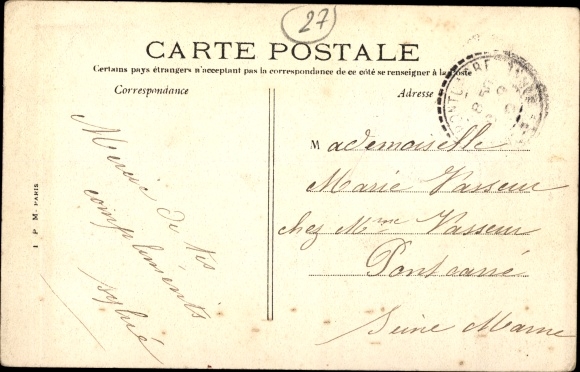 27
CARTE POSTALE
Certains pays étrangers n'acceptant pas la correspondance de ce côté se renseigner à la Poste
Correspondance
Adresse
Merci de tes
compléments
Sylvie
Mademoiselle
Marie Vasseur
chez Mme Vasseur
Pontcarré
Seine Marne
I P M - PARIS